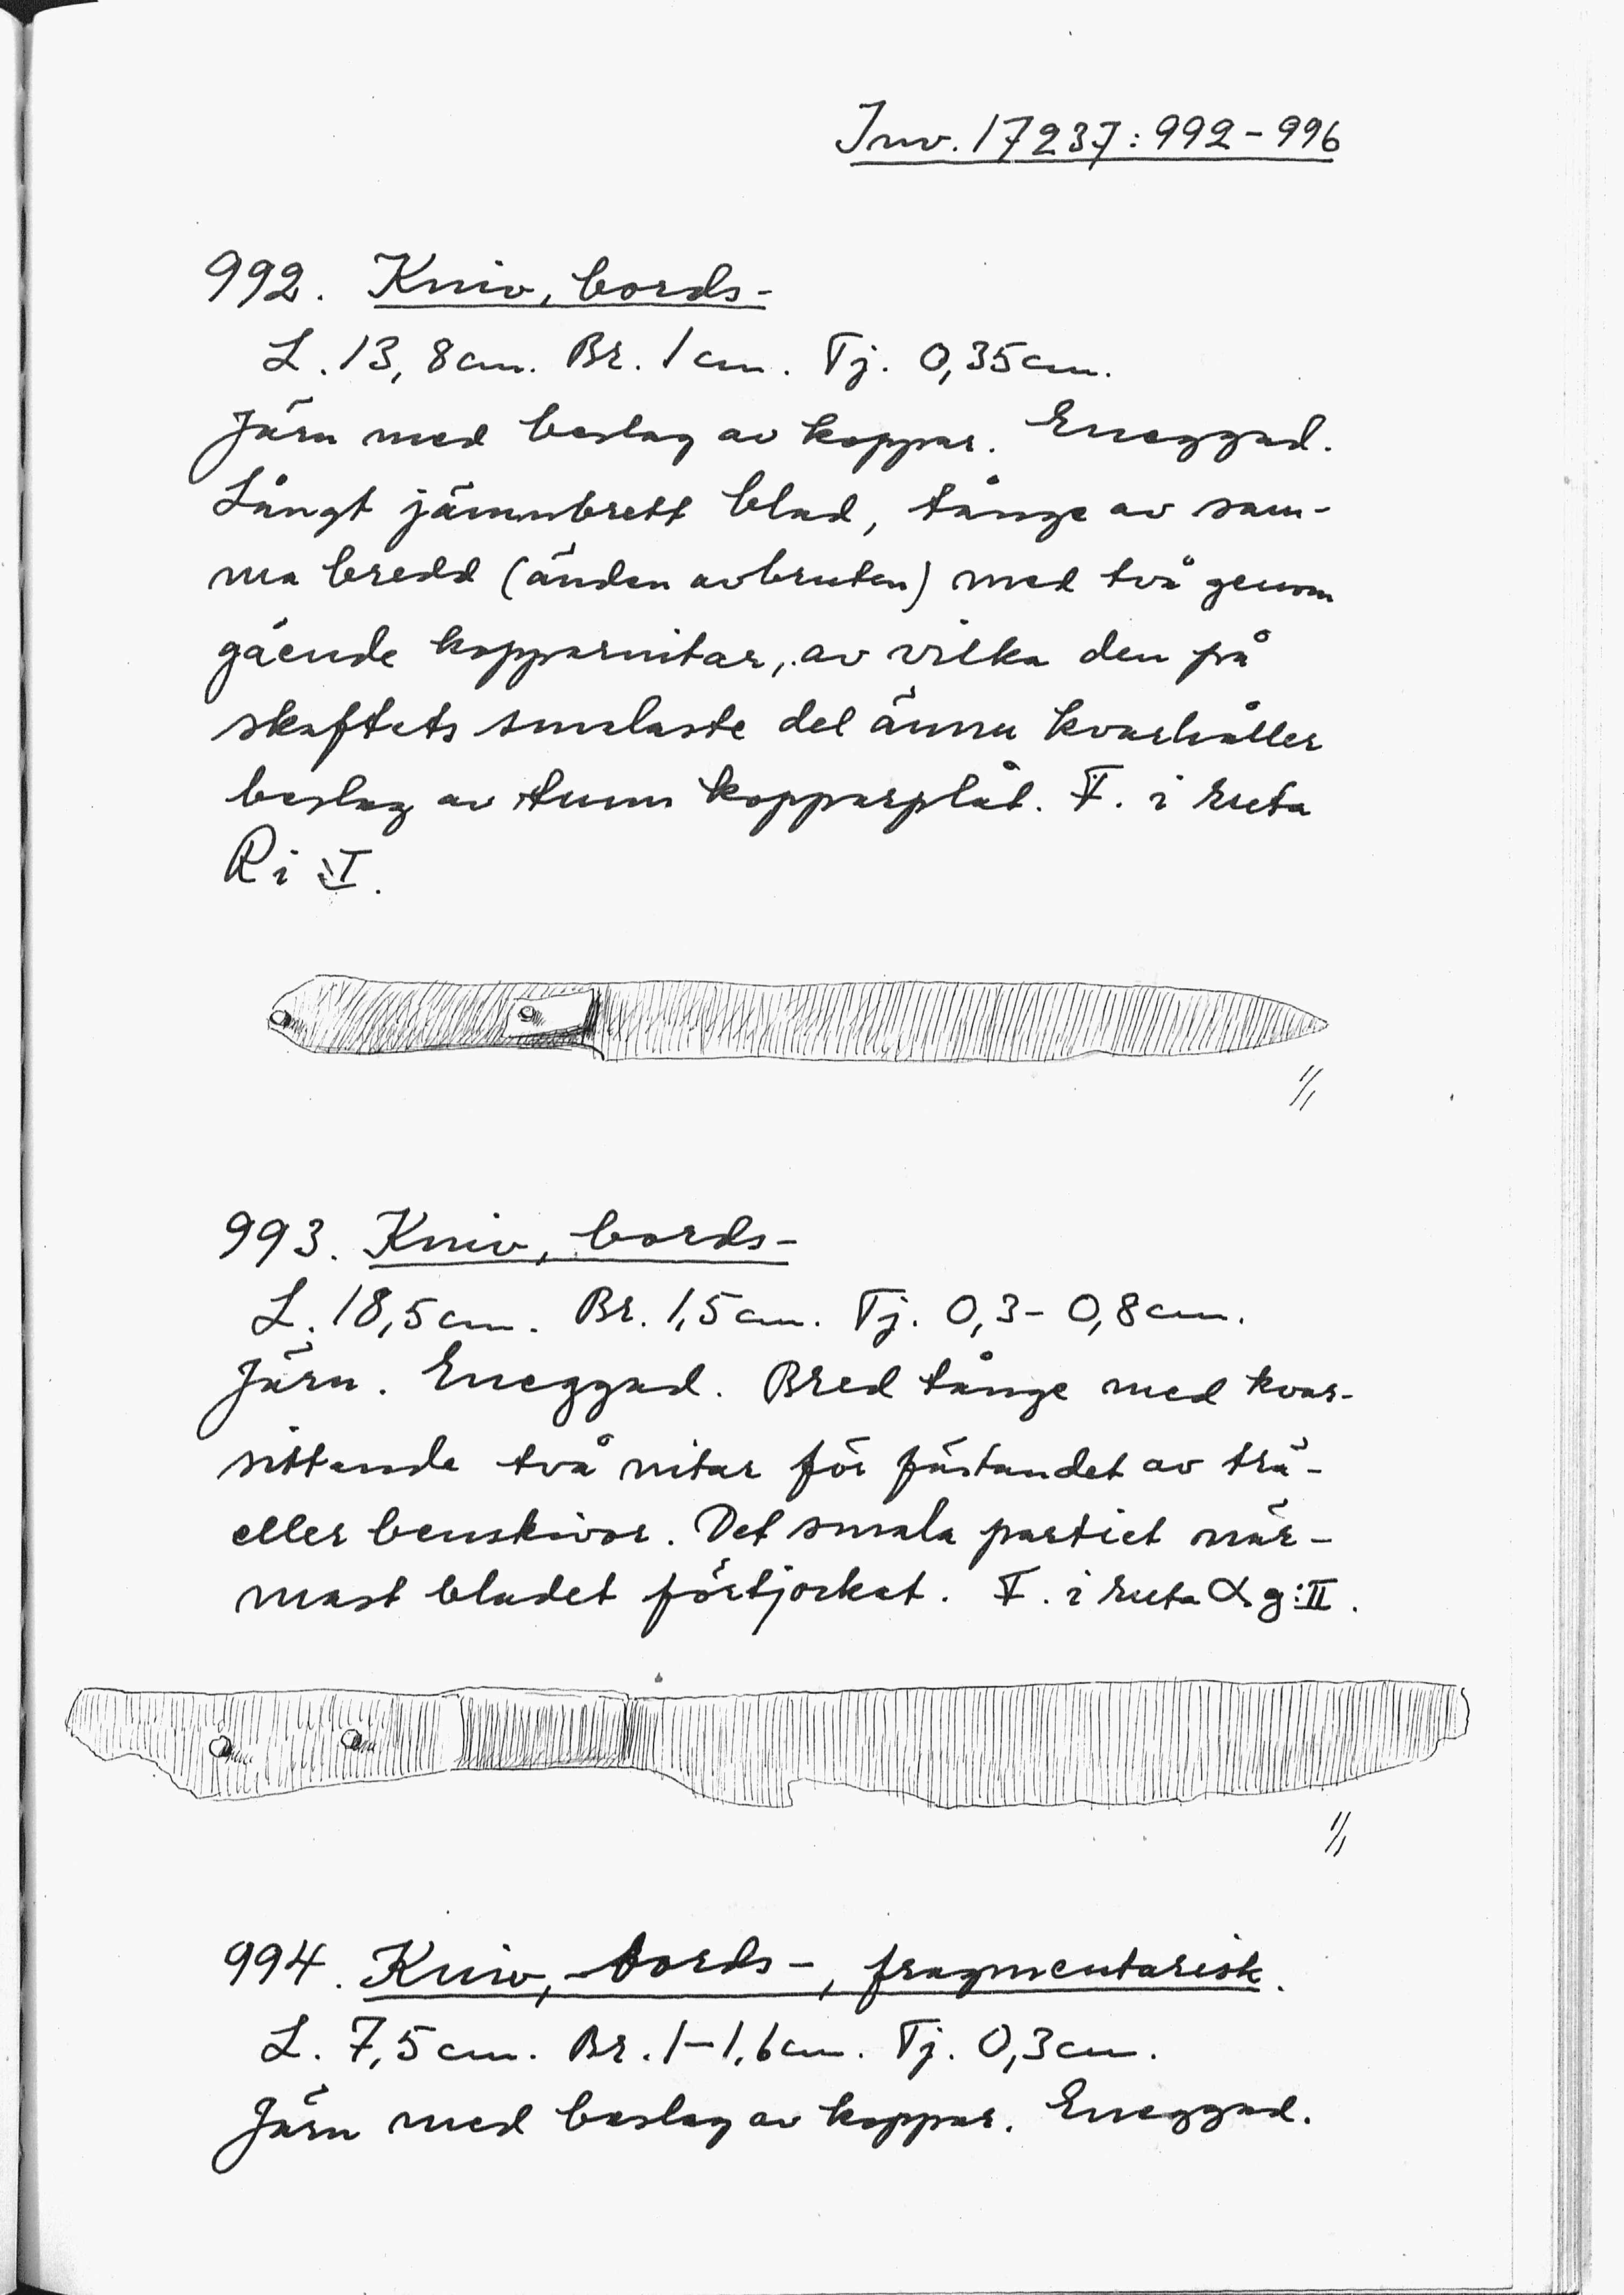 Inv. 17237:992-996
992. Kniv, bords-
L. 13,8cm. Br. 1cm. Tj. 0,35cm.
Järn med beslag av koppar. Eneggad.
Långt jämnbrett blad, tånge av sam-
ma bredd (änden avbruten) med två genom
gående kopparnitar, av vilka den på
skaftets smalaste del ännu kvarhåller
beslag av tunn kopparplåt. F. i ruta
R i :I.
1/1
993. Kniv, bords-
L. 18,5cm. Br. 1,5cm. Tj. 0,3-0,8cm.
Järn. Eneggad. Bred tånge med kvar-
sittande två nitar för fästandet av trä-
eller benskivor. Det smala partiet när-
mast bladet förtjockat. F. i ruta α g:II.
1/1
994. Kniv, bords-, fragmentarisk.
L. 7,5cm. Br. 1-1,6cm. Tj. 0,3cm.
Järn med beslag av koppar. Eneggad.